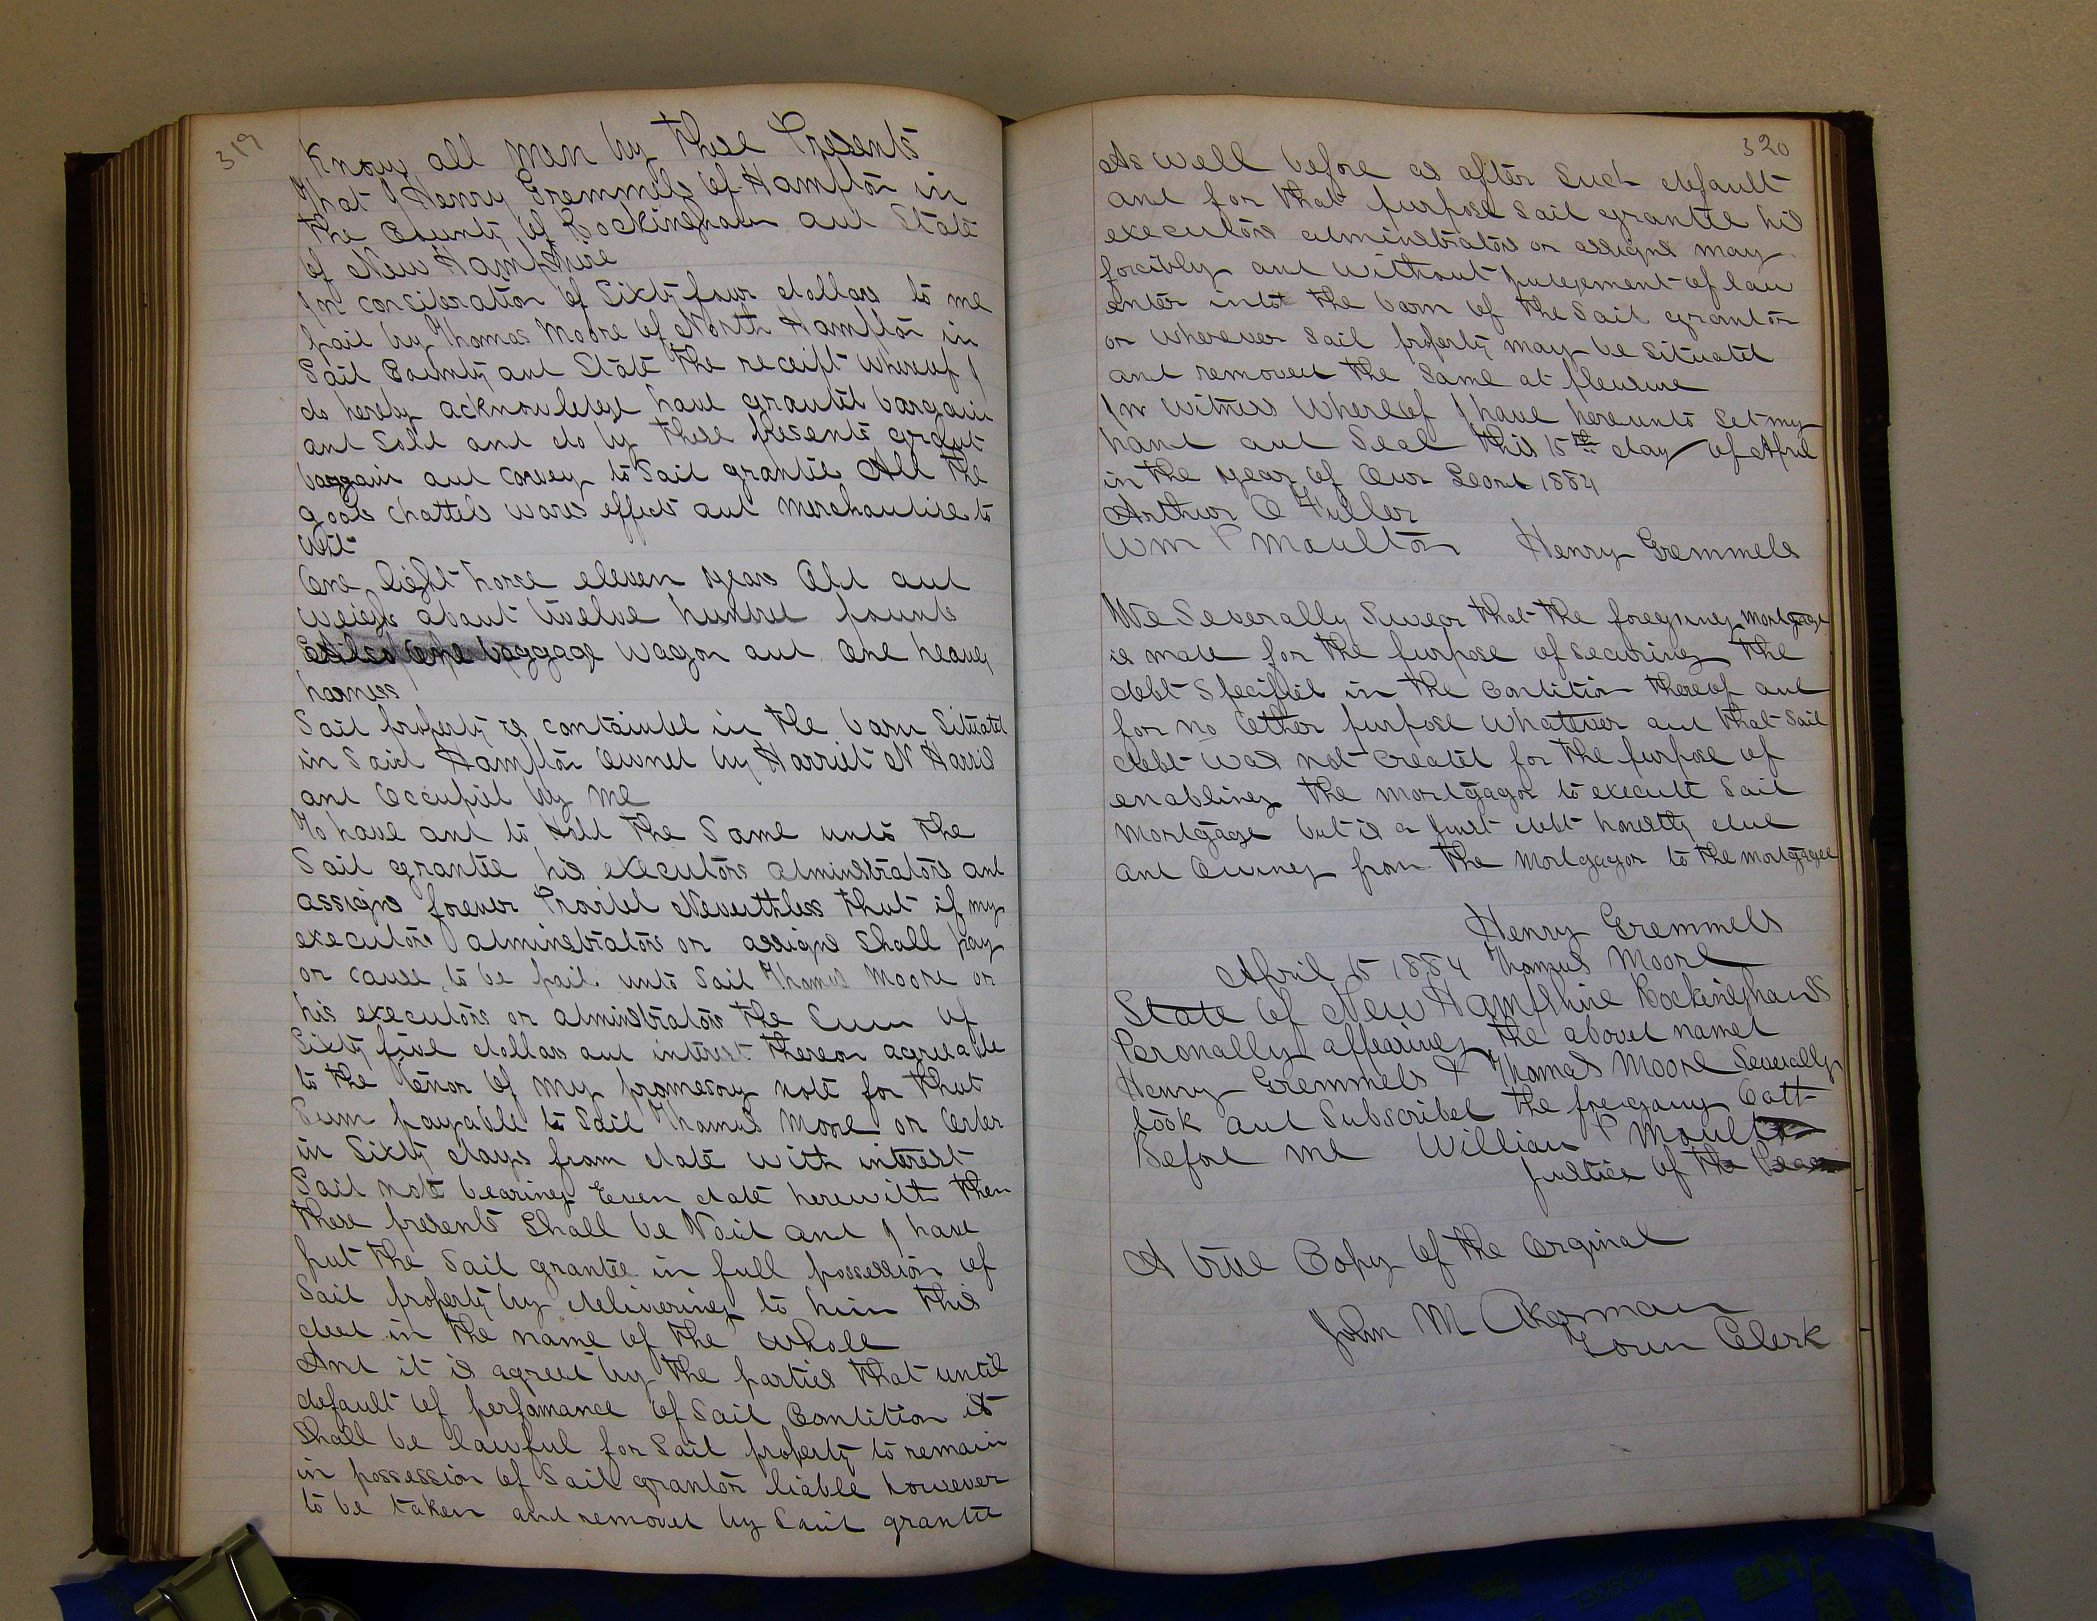 319
Know all men by these Presents
That I Henry Gremmels of Hampton in
the County of Rockingham and State
of New Hampshire
In concideration of Sixty four dollars to me
paid by Thomas Moore of North Hampton in
Said County and State the receipt whereof I
do hereby acknowledge have granted bargain
and Sold and do by these presents grant
bargain and convey to Said grantee All the
goods chattels wares effects and merchandise to
wit
One light horse eleven years Old and
weighs about twelve hundred pounds
Also One baggage wagon and One heavy
harness
Said property is containded in the barn Situated
in Said Hampton Owned by Harriet N Harris
and Occupied by me
To have and to Hold the Same unto the
Said grantee his executors adminstrators and
assigns forever Provided Nevertheless that if my
executors adminstrators or assigns Shall pay
or cause to be paid unto Said Thomas Moore or
his executors or adminstrators the Sum of
Sixty five dollars and interest thereon agreeable
to the tenor of my promesory note for that
Sum payable to Said Thomas Moore or Order
in Sixty days from date with interest
Said note bearing Even date herewith then
these presents Shall be Void and I have
put the Said grantee in full possession of
Said property by delivering to him this
deed in the name of the whole
And it is agreed by the parties that until
default of perfomance of Said Condition it
Shall be lawful for Said property to remain
in possession of Said grantor liable however
to be taken and removed by Said grantee
320
As well before as after Such default
and for that purpose Said grantee his
executors adminstrators or assigns may
forcibly and without judgement of law
enter into the barn of the Said grantor
or wherever Said property may be Situated
and removed the Same at pleasure
In Witness Whereof I have hereunto Set my
hand and Seal this 15th day of April
in the year of Our Leord 1884
Arthur O Fuller
Wm P Moulton Henry Gremmels
We Severally Swear that the foregoing Mortgage
is made for the purpose of securing the
debt Specified in the Condition thereof and
for no Other purpose whatever and that Said
debt was not created for the purpose of
enabling the mortgagor to execute Said
Mortgage but is a just debt honestly due
and Owing from the Mortgagor to the mortgagee
Henry Gremmels
April 15 1884 Thomas Moore
State of New Hampshire Rockingham S
Personally appearing the above named
Henry Gremmels & Thomas Moore Severally
took and Subscribed the foregoing Oath
Before me William P Moulton
Justice of the Peace
A true Copy of the Orginal
John M Akerman
Town Clerk